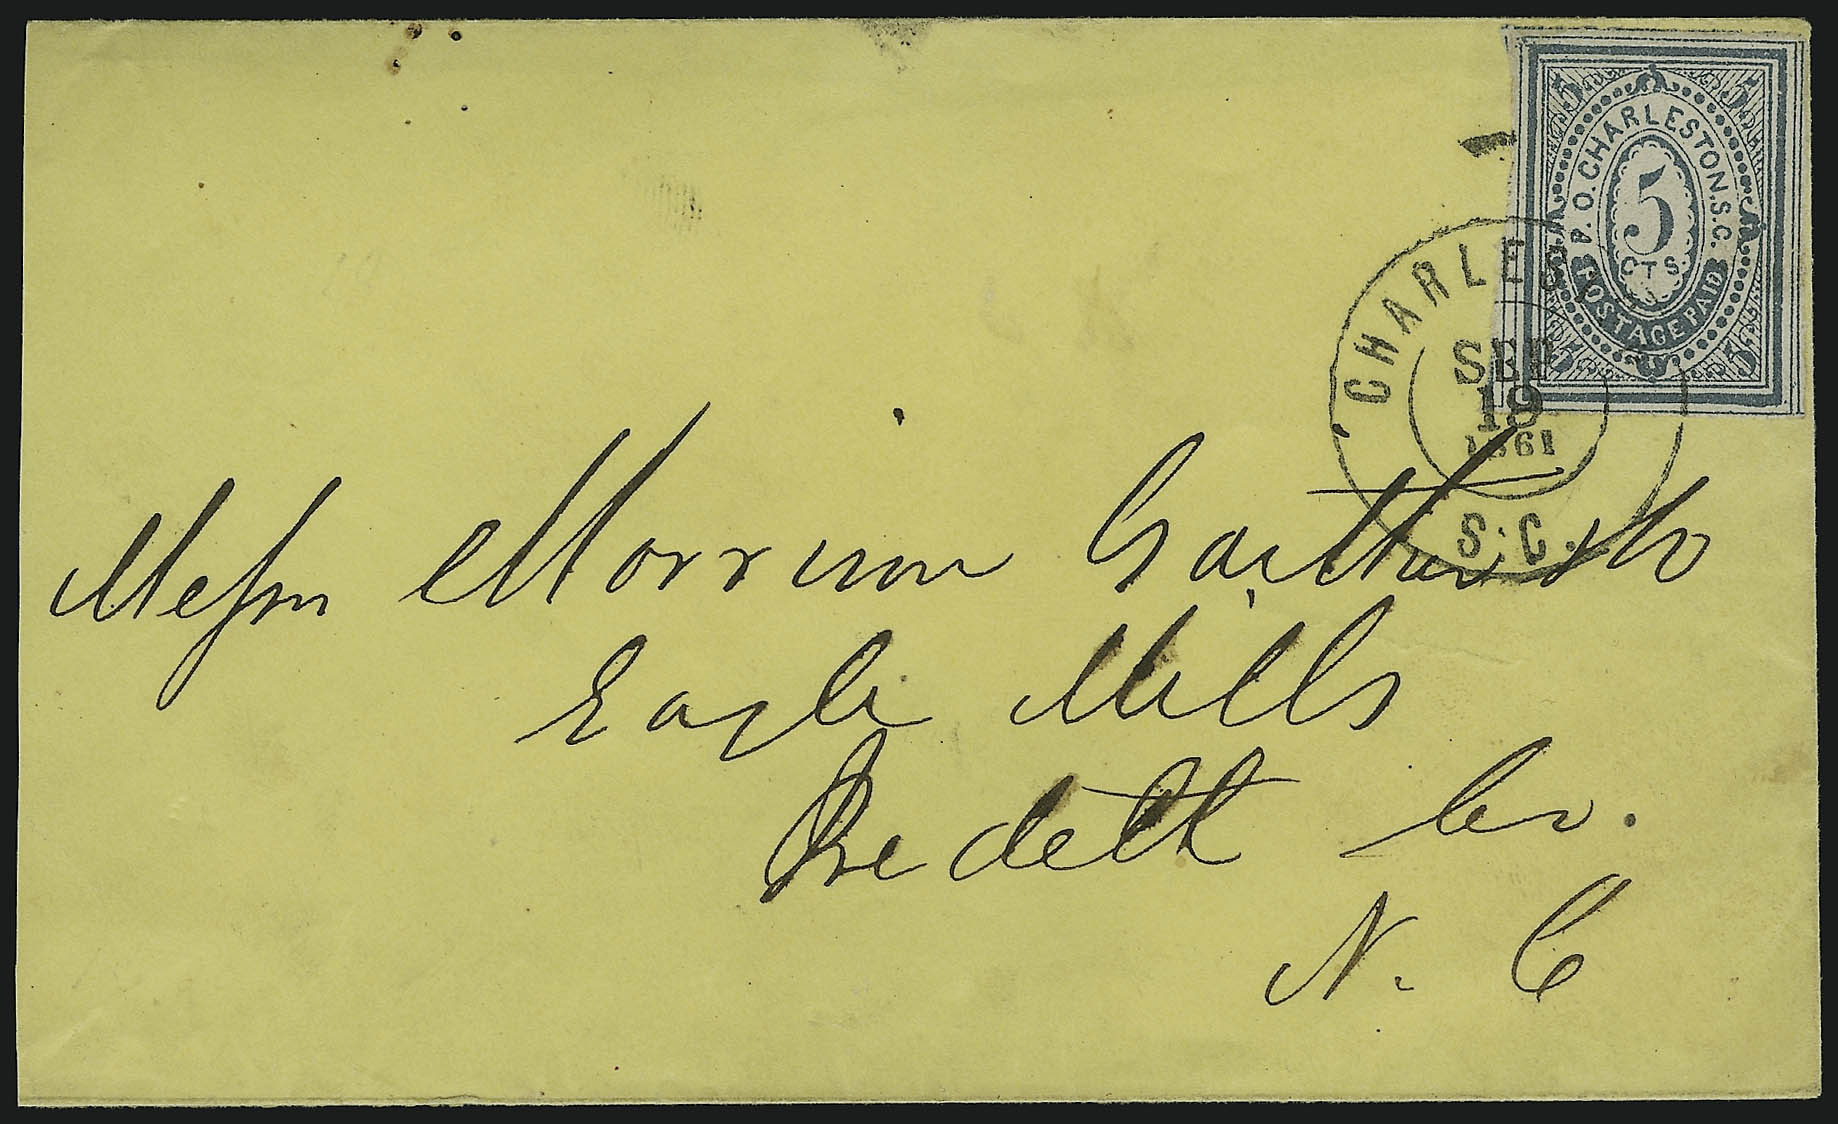 5 5
P.O. CHARLESTON. S.C.
5
CTS.
POSTAGE PAID
5 5
CHARLES
SEP
19
1861
S.C.
Messrs Morrison Gaither & Co
Eagle Mills
Iredell Co.
N. C